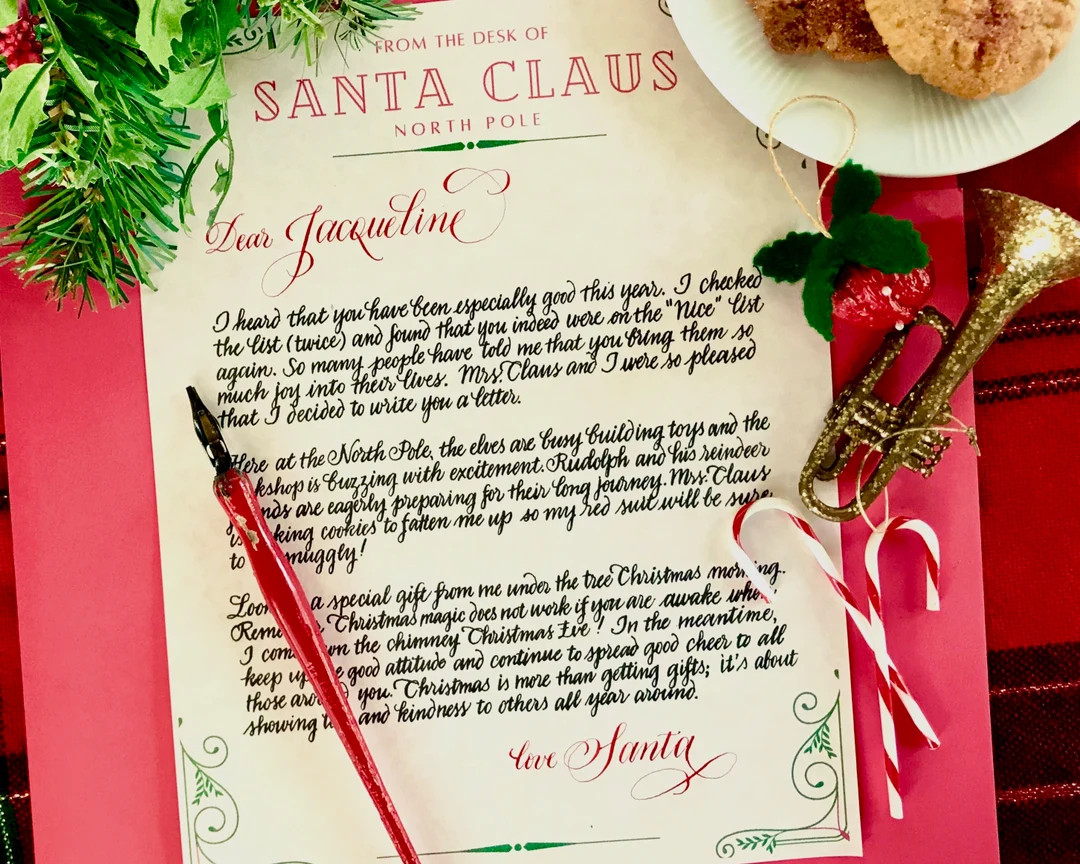 FROM THE DESK OF
SANTA CLAUS
NORTH POLE
Dear Jacqueline
I heard that you have been especially good this year. I checked
the list (twice) and found that you indeed were on the "Nice" list
again. So many people have told me that you bring them so
much joy into their lives. Mrs. Claus and I were so pleased
that I decided to write you a letter.
Here at the North Pole, the elves are busy building toys and the
kshop is buzzing with excitement. Rudolph and his reindeer
nds are eagerly preparing for their long journey. Mrs. Claus
is king cookies to fatten me up so my red suit will be sure
to nuggly!
Loo a special gift from me under the tree Christmas morning.
Reme Christmas magic does not work if you are awake when
I com wn the chimney Christmas Eve! In the meantime,
keep up e good attitude and continue to spread good cheer to all
those aro you. Christmas is more than getting gifts; it's about
showing and kindness to others all year around.
love Santa